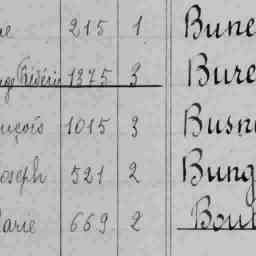 215 1 Bune
Frédéric 1375 3 Bure
nçois 1015 3 Busn
Joseph 521 2 Bung
Marie 669 2 Boul